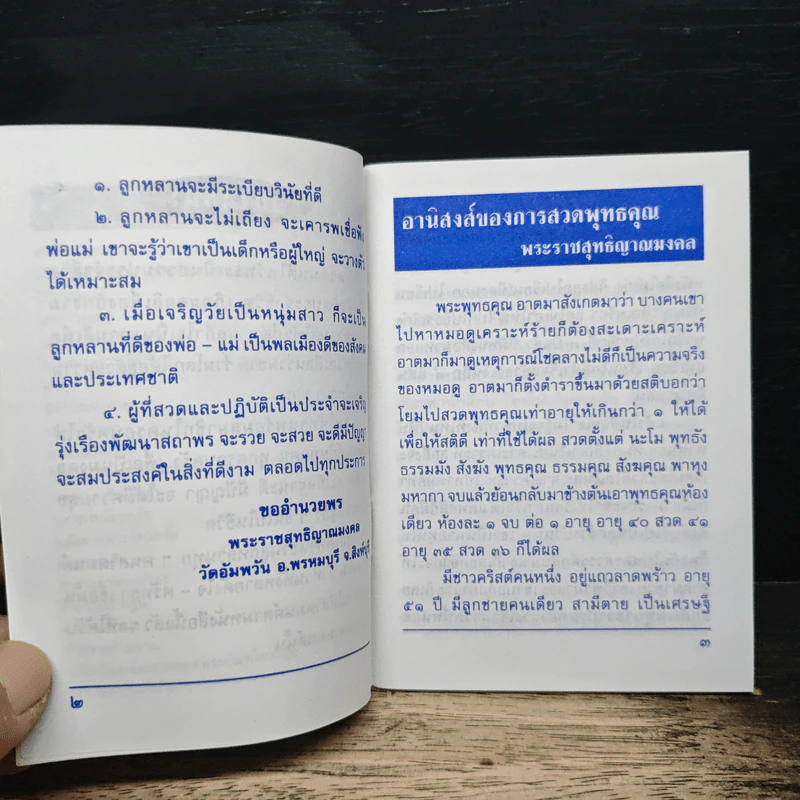 ๑. ลูกหลานจะมีระเบียบวินัยที่ดี
๒. ลูกหลานจะไม่เถียง จะเคารพเชื่อฟัง
พ่อแม่ เขาจะรู้ว่าเขาเป็นเด็กหรือผู้ใหญ่ จะวางตัว
ได้เหมาะสม
๓. เมื่อเจริญวัยเป็นหนุ่มสาว ก็จะเป็น
ลูกหลานที่ดีของพ่อ – แม่ เป็นพลเมืองดีของสังคม
และประเทศชาติ
๔. ผู้ที่สวดและปฏิบัติเป็นประจำจะเจริญ
รุ่งเรืองพัฒนาสถาพร จะรวย จะสวย จะดีมีปัญญา
จะสมประสงค์ในสิ่งที่ดีงาม ตลอดไปทุกประการ
ขออำนวยพร
พระราชสุทธิญาณมงคล
วัดอัมพวัน อ.พรหมบุรี จ.สิงห์บุรี
๒
อานิสงส์ของการสวดพุทธคุณ
พระราชสุทธิญาณมงคล
พระพุทธคุณ อาตมาสังเกตมาว่า บางคนเขา
ไปหาหมอดูเคราะห์ร้ายก็ต้องสะเดาะเคราะห์
อาตมาก็มาดูเหตุการณ์โชคลางไม่ดีก็เป็นความจริง
ของหมอดู อาตมาก็ตั้งตำราขึ้นมาด้วยสติบอกว่า
โยมไปสวดพุทธคุณเท่าอายุให้เกินกว่า ๑ ให้ได้
เพื่อให้สติดี เท่าที่ใช้ได้ผล สวดตั้งแต่ นะโม พุทธัง
ธรรมมัง สังฆัง พุทธคุณ ธรรมคุณ สังฆคุณ พาหุง
มหากา จบแล้วย้อนกลับมาข้างต้นเอาพุทธคุณห้อง
เดียว ห้องละ ๑ จบ ต่อ ๑ อายุ อายุ ๔๐ สวด ๔๑
อายุ ๓๕ สวด ๓๖ ก็ได้ผล
มีชาวคริสต์คนหนึ่ง อยู่แถวลาดพร้าว อายุ
๕๑ ปี มีลูกชายคนเดียว สามีตาย เป็นเศรษฐี
๓